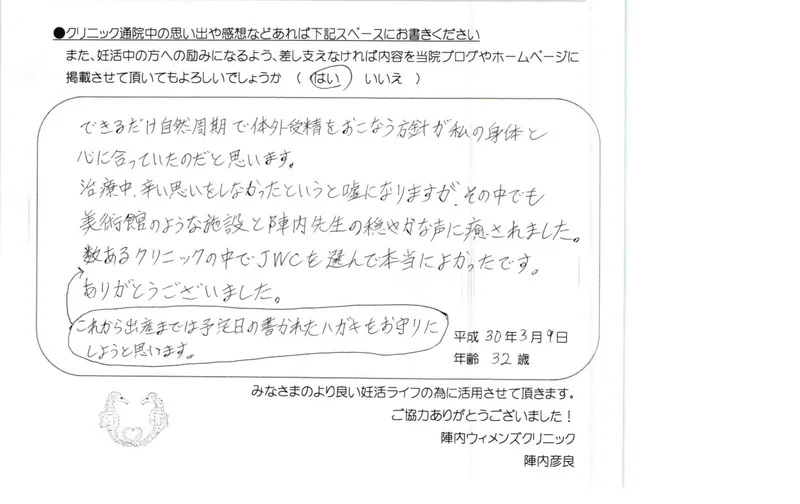 ●クリニック通院中の思い出や感想などあれば下記スペースにお書きください
また、妊活中の方への励みになるよう、差し支えなければ内容を当院ブログやホームページに
掲載させて頂いてもよろしいでしょうか （ はい いいえ ）
できるだけ自然周期で体外受精をおこなう方針が私の身体と
心に合っていたのだと思います。
治療中、辛い思いをしなかったというと嘘になりますが、その中でも
美術館のような施設と陣内先生の穏やかな声に癒されました。
数あるクリニックの中でJWCを選んで本当によかったです。
ありがとうございました。
これから出産までは予定日の書かれたハガキをお守りに
しようと思います。
平成 30年3月9日
年齢 32 歳
みなさまのより良い妊活ライフの為に活用させて頂きます。
ご協力ありがとうございました！
陣内ウィメンズクリニック
陣内彦良